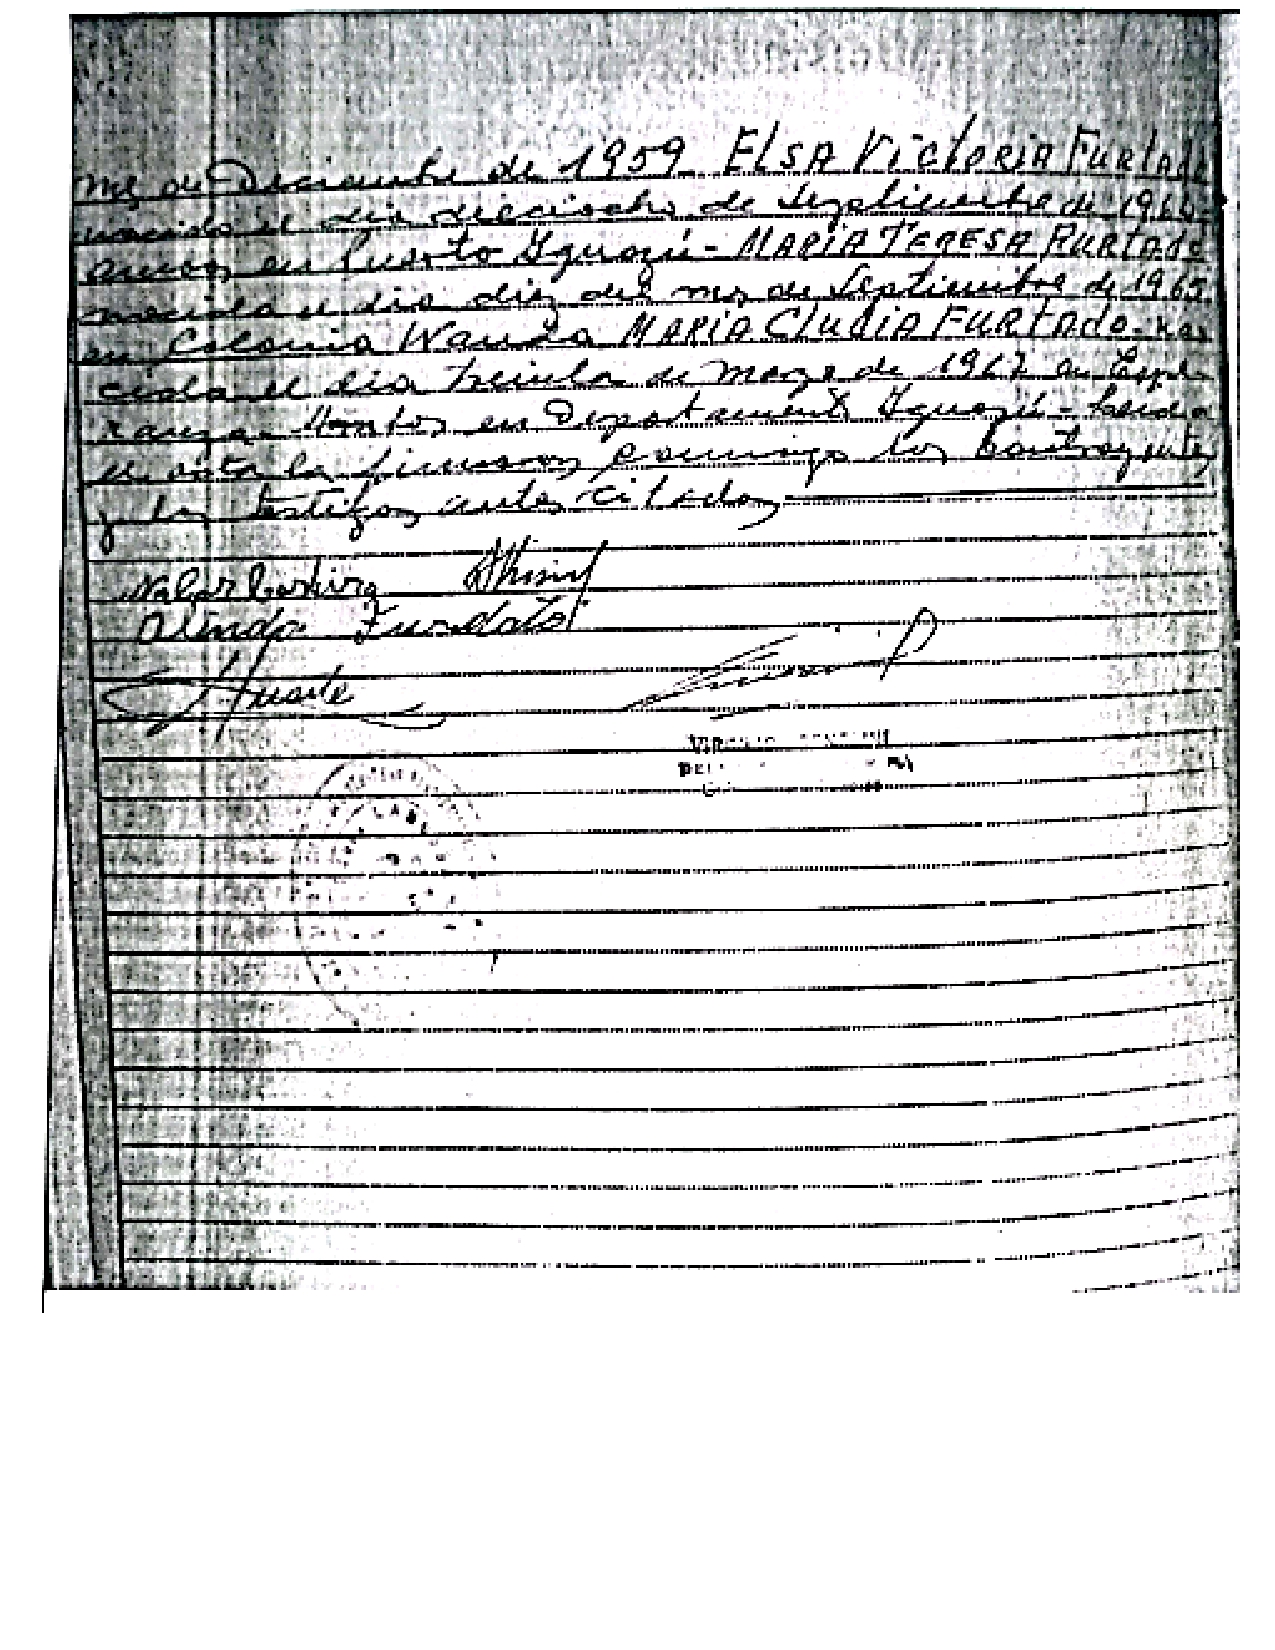 mes de Diciembre de 1959 ELSA VICTORIA FURTADO
nacida el dia dieciocho de Septiembre de 196
ambos en Puerto Yguazú - MARIA TERESA FURTADO
nacida el dia diez del mes de Septiembre de 1965
en Colonia Wanda MARIA CLUDIA FURTADO - na
cida el dia treinta de Mayo de 1967 en Espe
ranza - todos en Departamento Yguazú - Leida
el acta la firmaron conmigo los Contrayentes
y los testigos antes citados
Olindo Furtado
Huarte
LA